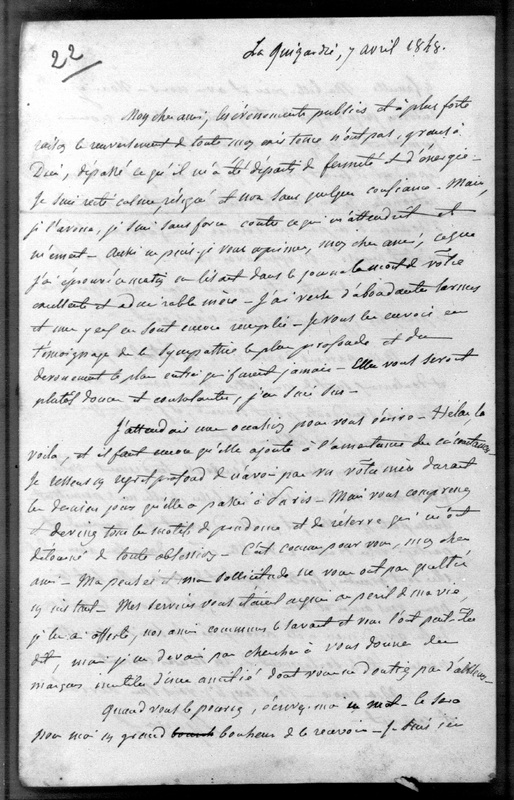 22
La Quizardie, 7 avril 1848.
Mon cher ami, les événements publics et à plus forte
raison le renversement de toute mon existence n'ont pas, grâces à
Dieu, dépassé ce qu'il m'a été départi de fermeté et d'énergie —
Je suis resté calme, résigné et non sans quelque confiance — Mais,
je l'avoue, je suis sans force contre ce qui m'attendrit et
m'émeut — Aussi ne puis-je vous exprimer, mon cher ami, ce que
j'ai éprouvé ce matin en lisant dans le journal la mort de vôtre
excellente et admirable mère — J'ai versé d'abondantes larmes
et mes yeux en sont encore remplis — Je vous les envoie en
témoignage de la sympathie la plus profonde et du
dévouement le plus entier qui furent jamais — Elles vous seront
plutôt douces et consolantes, j'en suis sûr —
J'attendais une occasion pour vous écrire — Hélas, la
voilà, et il faut encore qu'elle ajoute à l'amertume des circonstances —
Je ressens un regret profond de n'avoir pas vu vôtre mère durant
les derniers jours qu'elle a passés à Paris — Mais vous comprenez
et devinez tous les motifs de prudence et de réserve qui m'ont
détourné de toute obsession — C'est comme pour vous, mon cher
ami — Ma pensée et ma sollicitude ne vous ont pas quitté
un instant — Mes services vous étaient acquis au péril de ma vie,
je les ai offerts, nos amis communs le savent et vous l'ont peut-être
dit, mais je ne devais pas chercher à vous donner des
marques inutiles d'une amitié dont vous ne doutez pas d'ailleurs —
Quand vous le pourrez, écrivez-moi un mot — Ce sera
pour moi un grand bonheur de le recevoir — Je suis ici